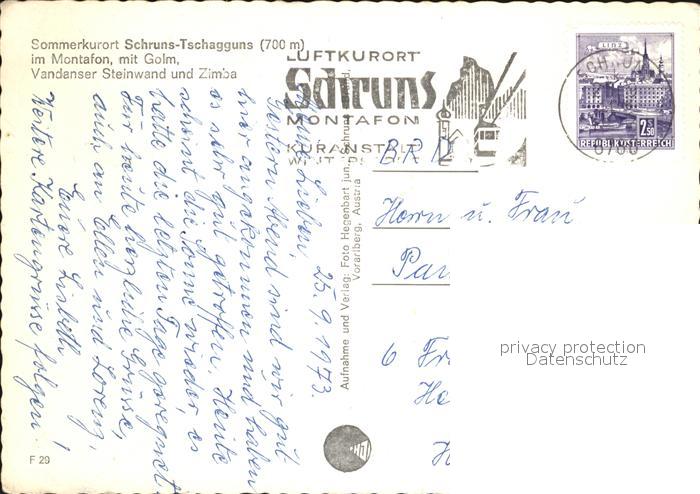 Sommerkurort Schruns-Tschagguns (700 m)
im Montafon, mit Golm,
Vandanser Steinwand und Zimba
LUFTKURORT
Schruns
MONTAFON
KURANSTALT
LINZ
2.50
REPUBLIK ÖSTERREICH
6780
25.9.1973.
Meine Lieben,
Gestern Abend sind wir gut
hier angekommen und haben
es sehr gut getroffen. Heute
scheint die Sonne wieder, es
hatte die letzten Tage geregnet
Für heute herzliche Grüsse,
auch an Ellen und Lorenz,
Eure Lisbeth
Weitere Kartengrüsse folgen!
Aufnahme und Verlag: Foto Hegenbart jun., Schruns
Vorarlberg, Austria
BRD
Herrn u. Frau
6
privacy protection
Datenschutz
F 29